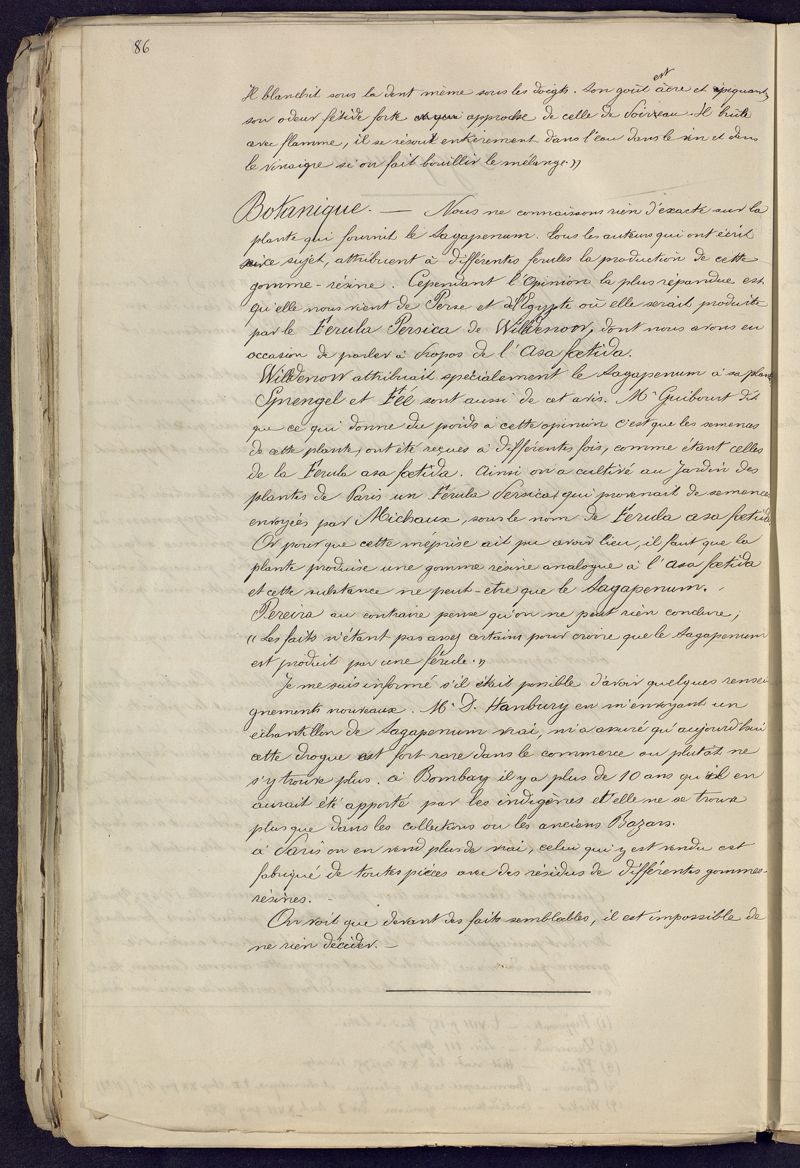 86
Il blanchit sous la dent même sous les doigts. Son goût est âcre et piquant,
son odeur fétide forte approche de celle de Poireau. Il brûle
avec flamme, il se résout entièrement dans l'eau dans le vin et dans
le vinaigre si on fait bouillir le mélange."
Botanique. — Nous ne connaissons rien d'exacte sur la
plante qui fournit le Sagapenum. Tous les auteurs qui ont écrit
sur ce sujet, attribuent à différentes ferules la production de cette
gomme-résine. Cependant l'Opinion la plus répandue est
qu'elle nous vient de Perse et d'Egypte où elle serait produite
par le Ferula Persica de Willdenow, dont nous avons eu
occasion de parler à Propos de l'Asa fœtida.
Willdenow attribuait spécialement le Sagapenum à sa plante
Sprengel et Féé sont aussi de cet avis. Mr Guibourt dit
que ce qui donne du poids à cette opinion c'est que les semences
de cette plante, ont été reçues à différentes fois, comme étant celles
de la Ferula asa fœtida. Ainsi on a cultivé au Jardin des
plantes de Paris un Ferula Persica, qui provenait de semences
envoyées par Michaux, sous le nom de Ferula asa fœtida
Or pour que cette méprise ait pu avoir lieu, il faut que la
plante produise une gomme résine analogue à l'Asa fœtida
et cette substance ne peut-etre que le Sagapenum.
Pereira au contraire pense qu'on ne peut rien conclure,
"Les faits n'étant pas assez certains pour croire que le Sagapenum
est produit par une férule."
Je me suis informé s'il était possible d'avoir quelques rensei-
gnements nouveaux. Mr D. Hanbury en m'envoyant un
échantillon de Sagapenum vrai, m'a assuré qu'aujourd'hui
cette drogue est fort rare dans le commerce ou plutôt ne
s'y trouve plus. à Bombay il y a plus de 10 ans qu'il en
aurait été apporté par les indigènes et elle ne se trouve
plus que dans les collections ou les anciens Bazars.
à Paris on en vend plus de vrai, celui qui y est vendu est
fabriqué de toutes pièces avec des résidus de différentes gommes-
résines. -
On voit que devant des faits semblables, il est impossible de
ne rien décider. —